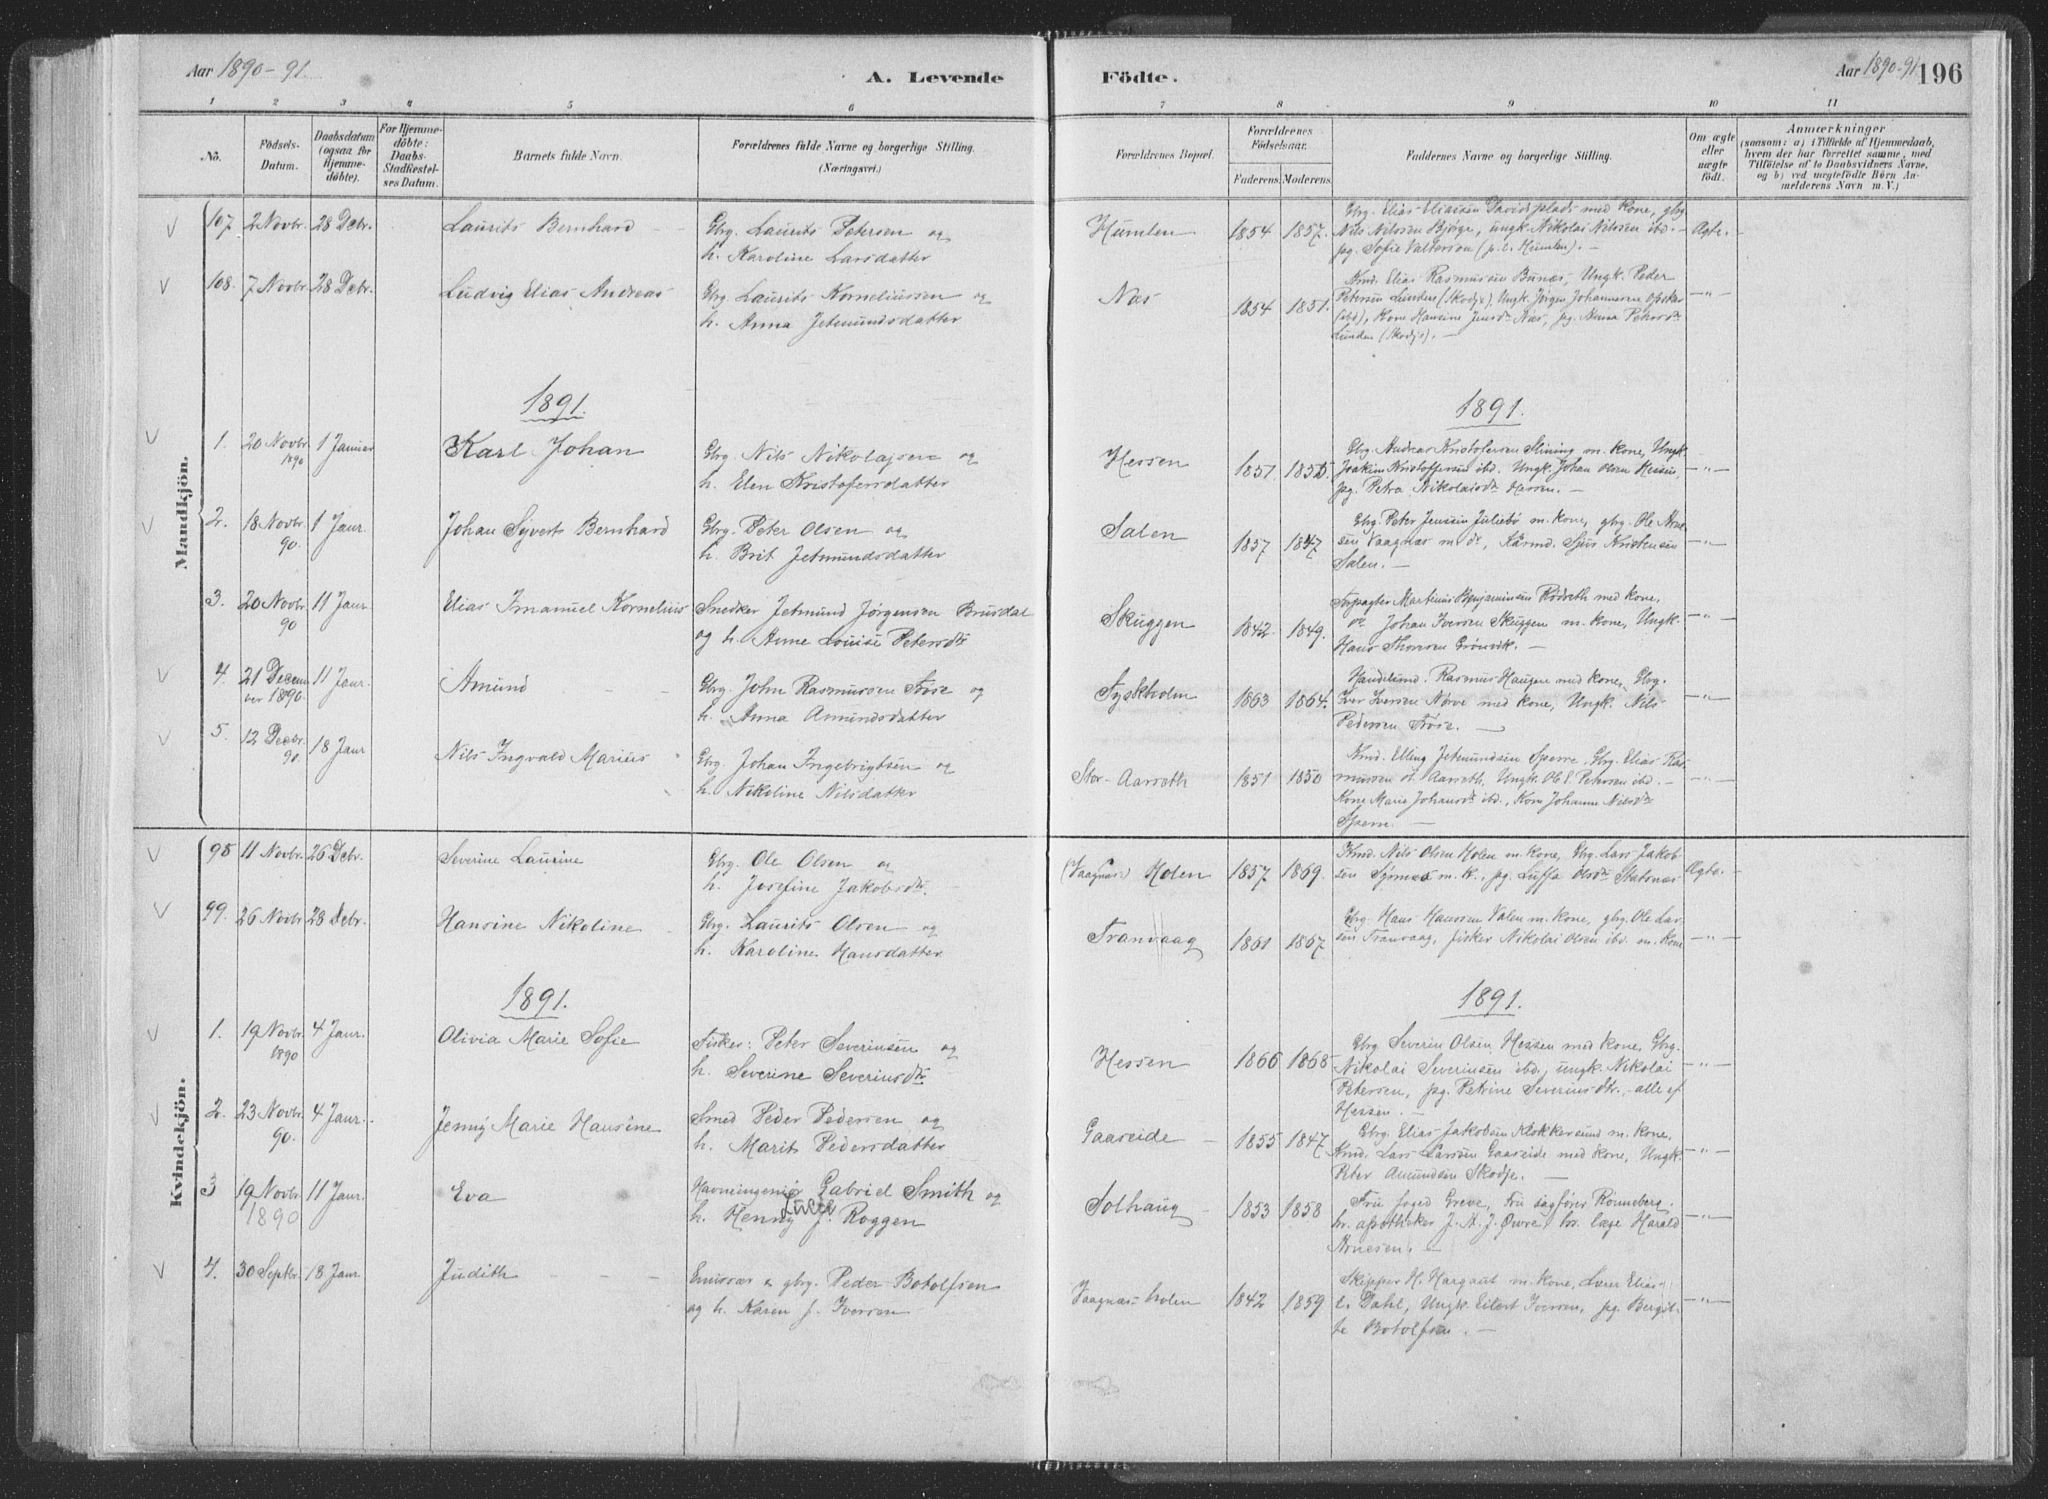 Aar 1890-91.
A. Levende
Födte.
Aar 1890-91
196
1 2 3 4 5 6 7 8 9 10 11
No.
Födsels-
Datum.
Daabsdatum
(ogsaa for
Hjemme-
döbte).
For Hjemme-
döbte:
Daabs-
Stadfæstel-
ses Datum.
Barnets fulde Navn.
Forældrenes fulde Navne og borgerlige Stilling.
(Næringsvei.)
Forældrenes Bopæl.
Forældrenes
Födselsaar.
Faderens. Moderens.
Faddernes Navne og borgerlige Stilling.
Om ægte
eller
uægte
födt.
Anmærkninger
(saasom: a) i Tilfælde af Hjemmedaab,
hvem der har forrettet samme, med
Tilföielse af to Daabsvidners Navne,
og b) ved uægtefödte Börn An-
melderens Navn m. V.)
Mandkjön.
107. 2 Novbr. 28 Debr. Laurits Bernhard Gbrg. Laurits Petersen og
h. Karoline Larsdatter
Humlen 1854 1857. Gbrg. Elias Eliassen Davidsplads med Kone, gbrg
Nils Nilssen Bjørge, ungk. Nikolai Nilssen ibd. Ægte.
pg. Sofie Valterson (p. t. Humlen).
108. 7 Novbr. 28 Debr. Ludvig Elias Andreas Gbrg. Laurits Korneliussen og
h. Anna Jetmundsdatter
Næs 1854 1851. Kmd. Elias Rasmussen Bunæs, Ungk. Peder
Petersen Lunden (Skodje), Ungk. Jørgen Johannesen
(ibd), Kone Hansine Jensdr Næs, pg. Anna Petersdr
Lunden (Skodje). —
1891.
1891.
1. 20 Novbr. 1890 1 Januar Karl Johan Gbrg. Nils Nikolajsen og
h. Elen Kristofersdatter
Hessen 1851. 1855. Gbrg. Andreas Kristofersen Slining m. Kone, Ungk.
Joakim Kristoffersen ibd. Ungk. Johan Olsen Hessen,
pg. Petra Nikolaisdr Hessen. —
2. 18 Novbr. 90. 1 Janr. Johan Syverts Bernhard Gbrg. Peter Olsen og
h. Brit Jetmundsdatter
Salen 1857 1847 Gbrg. Peter Jenssen Juliebø m. Kone, gbrg. Ole Arne-
sen Vaagnæs m. dr, Sjur Kristensen
Salen. —
3. 20 Novbr. 90 11 Janr. Elias Imanuel Kornelius Snedker Jetmund Jørgensen Brusdal
og h. Anne Louise Petersdr
Skuggen 1842. 1849. Forpagter Martinus Benjaminsen Rødseth med Kone,
do Johan Iversen Skuggen m. Kone, Ungk.
Hans Thomsen Grønvik. —
4. 21 Decem ber 1890. 11 Janr. Amund Gbrg. John Rasmussen Frøse og
h. Anna Amundsdatter
Tyskholm 1863 1864. Handelsmd. Rasmus Haugen med Kone, Gbrg.
Iver Iversen Nørve med Kone, Ungk. Nils
Pedersen Frøse. —
5. 12 Decbr. 90. 18 Janr Nils Ingvald Marius Gbrg. Johan Ingebrigtsen og
h. Nikoline Nilsdatter
Stor-Aarseth 1851 1850 Kmd. Elling Jetmundsen Sperre, Gbrg. Elias Ras-
mussen st. Aarseth, Ungk. Ole E. Petersen ibd. —
Kone Marie Johansdr ibd., Kone Johanne Nilsdr
Sperre. —
Kvindekjön.
98 11 Novbr. 26 Debr. Severine Laurine Gbrg. Ole Olsen og
h. Josefine Jakobsdr.
(Vaagnæs) Holen 1857 1869. Kmd. Nils Olsen Holen m. Kone, Gbrg. Lars Jakob-
sen m. K., pg. Olsdr Ægte.
99. 26 Novbr 28 Debr. Hansine Nikoline Gbrg. Laurits Olsen og
h. Karoline Hansdatter
Tranvaag 1861 1867. Gbrg. Hans Hanssen Valen m. Kone, gbrg. Ole Lar-
sen Tranvaag, fisker Nikolai Olsen ibd. m. Kone
1891.
1891.
1. 19 Novbr. 1890 4 Janr. Olivia Marie Sofie Fisker: Peter Severinsen og
h. Severine Severinsdtr
Hessen 1866 1868 Gbrg. Severin Olsen Hessen med Kone, Gbrg.
Nikolai Severinsen ibd., ungk. Nikolai
Petersen, pg. Petrine Severinsdtr., alle af
Hessen. —
2. 23 Novbr. 90. 4 Janr. Jenny Marie Hansine Smed Peder Pedersen og
h. Marit Pedersdatter
Gaaseide 1855 1847 Gbrg. Elias Jakobsen Klokkersund m. Kone,
Kmd. Lars Larssen Gaaseide med Kone, Ungk.
Peter Amundsen Skodje. —
3 19 Novbr. 1890 11 Janr. Eva Havningeniør Gabriel Smith og
h. Henny Lucie f. Roggen
Solhaug 1853 1858 Fru foged Greve, Fru sagfører Rønneberg.
hr. apotheker J. A. J. Øwre, hr. læge Harald
Arnesen. —
4. 30 Septbr. 18 Janr. Judith Emissær & gbrg. Peder Botolfsen
og h. Karen f. Iversen
Vaagnæs-holen 1842 1859 Skipper H. Hargaut m. Kone, Lærer Elias
E. Dahl, Ungk. Eilert Iversen, pg. Bergit-
te Botolfsen. —